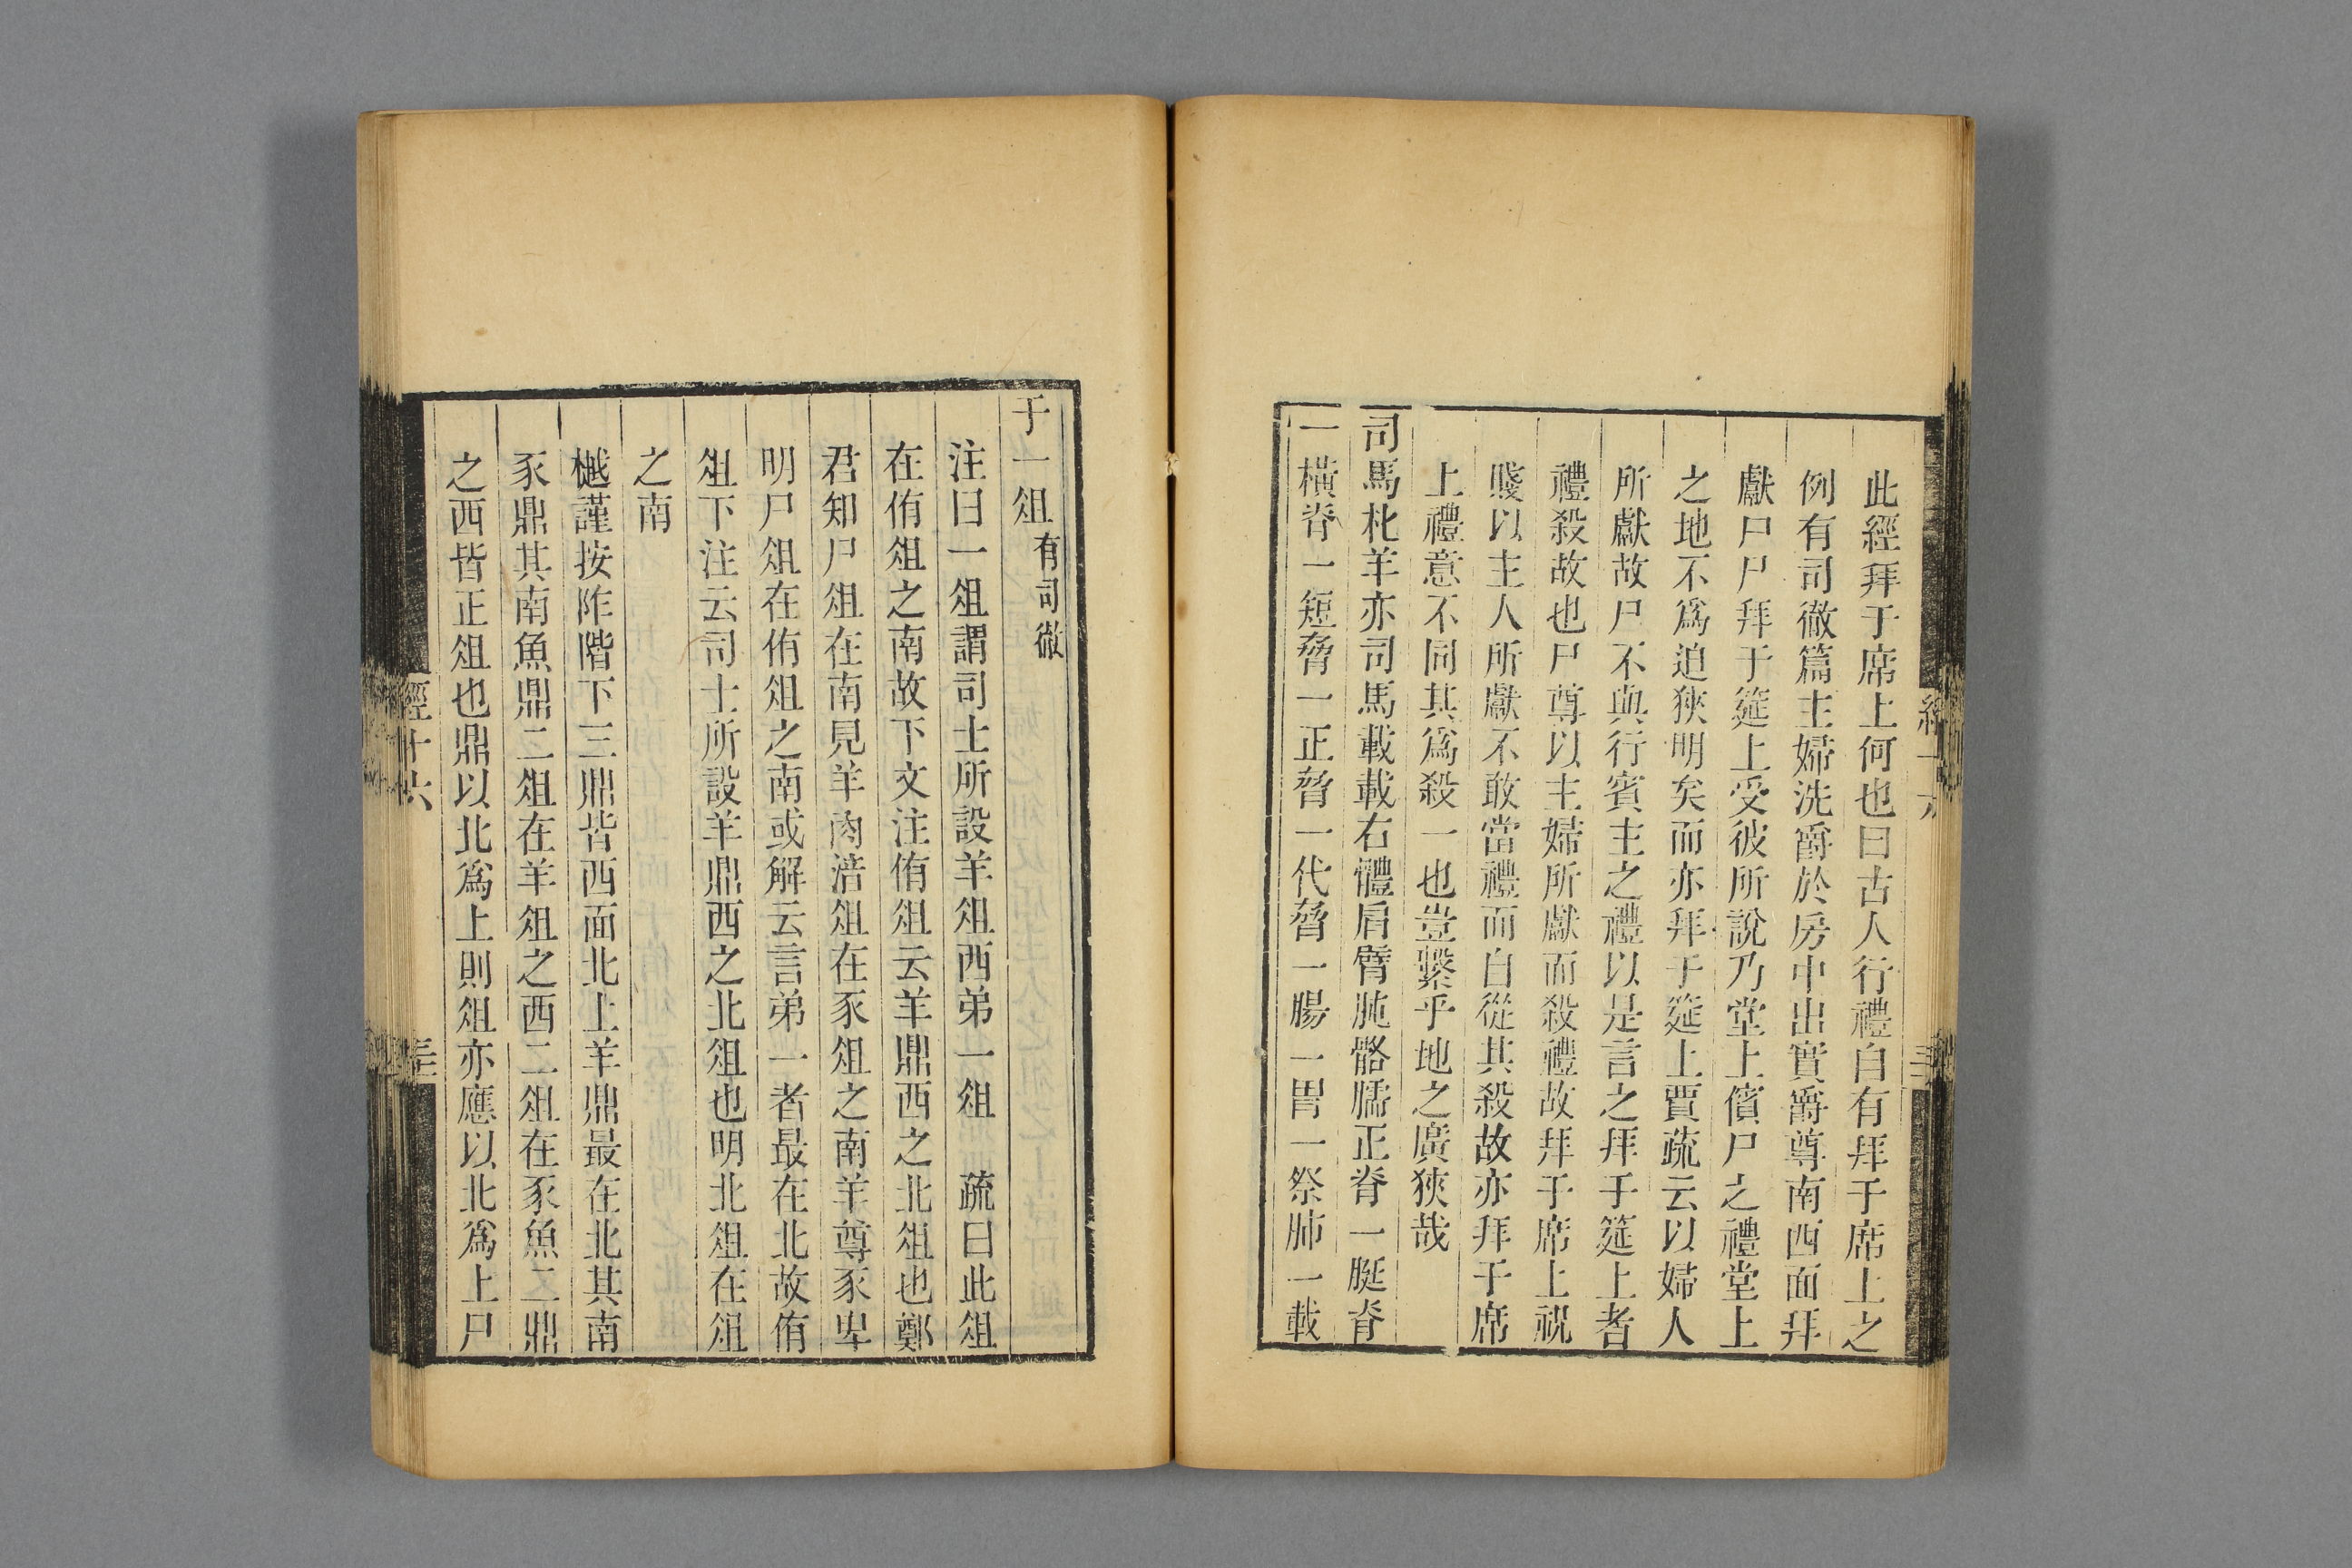 此經拜于席上何也曰古人行禮自有拜于席上之
例有司徹篇主婦洗爵於房中出實爵尊南西面拜
獻尸尸拜于筵上受彼所說乃堂上儐尸之禮堂上
之地不爲迫狹明矣而亦拜于筵上賈疏云以婦人
所獻故尸不與行賓主之禮以是言之拜于筵上者
禮殺故也尸尊以主婦所獻而殺禮故拜于席上祝
賤以主人所獻不敢當禮而自從其殺故亦拜于席
上禮意不同其爲殺一也豈繫乎地之廣狹哉
司馬朼羊亦司馬載載右體肩臂肫骼臑正脊一脡脊
一橫脊一短脅一正脅一代脅一腸一胃一祭肺一載
于一俎有司徹
注曰一俎謂司士所設羊俎西弟一俎　疏曰此俎
在侑俎之南故下文注侑俎云羊鼎西之北俎也鄭
君知尸俎在南見羊肉湆俎在豕俎之南羊尊豕卑
明尸俎在侑俎之南或解云言弟一者最在北故侑
俎下注云司士所設羊鼎西之北俎也明北俎在俎
之南
樾謹按阼階下三鼎皆西面北上羊鼎最在北其南
豕鼎其南魚鼎二俎在羊俎之西二俎在豕魚二鼎
之西皆正俎也鼎以北爲上則俎亦應以北爲上尸
經十六